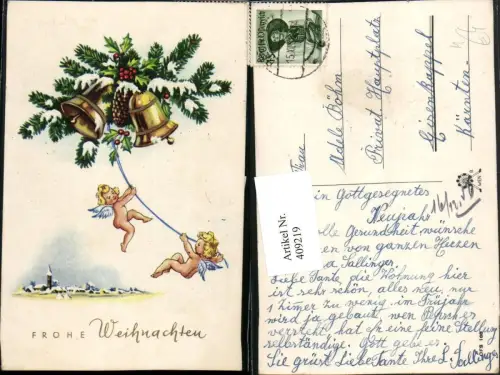 FROHE Weihnachten
REPUBLIK ÖSTERREICH
Frau
Adele Böhm
Privat Hauptplatz
Eisenkappel
Kärnten.
Artikel Nr.
409219
in Gottgesegnetes
Neujahr
olle Gesundheit wünsche
en von ganzen Herzen
a Sallinger
Liebe Tante, die Wohnung hier
ist sehr schön, alles neu, nur
1 Zimer zu wenig im Frühjahr
wird ja gebaut, wen
versteht hat er eine feine Stellung
selbständige. Gott gebe es.
Sie grüst Liebe Tante Ihre L. Sallinger